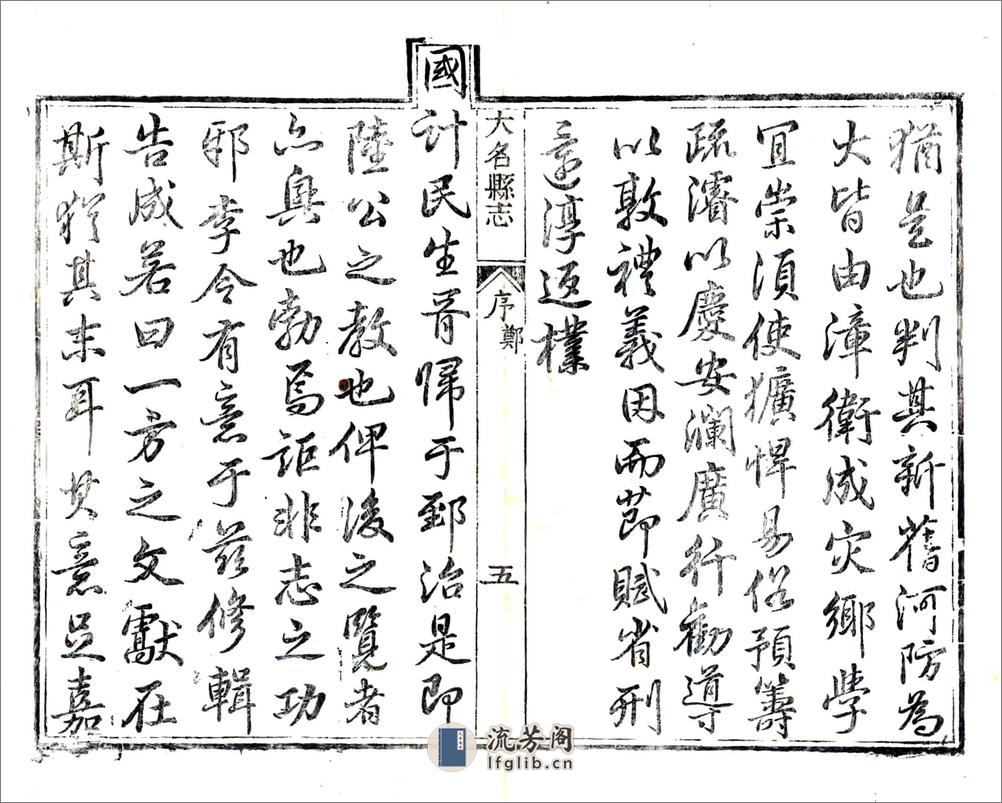 猶是也判其新舊河防為
大皆由漳衛成灾鄉學
宜崇須使獷悍易俗預籌
疏濬以慶安瀾廣行勸導
以敦禮義因而節賦省刑
還淳返樸
大名縣志
序鄭
五
國計民生胥歸于郅治是即
陸公之教也俾後之覽者
亦奥也勃焉詎非志之功
邪李令有意于茲修輯
告成若曰一方之文獻在
斯猶其末耳其意足嘉
流芳阁
lfglib.cn